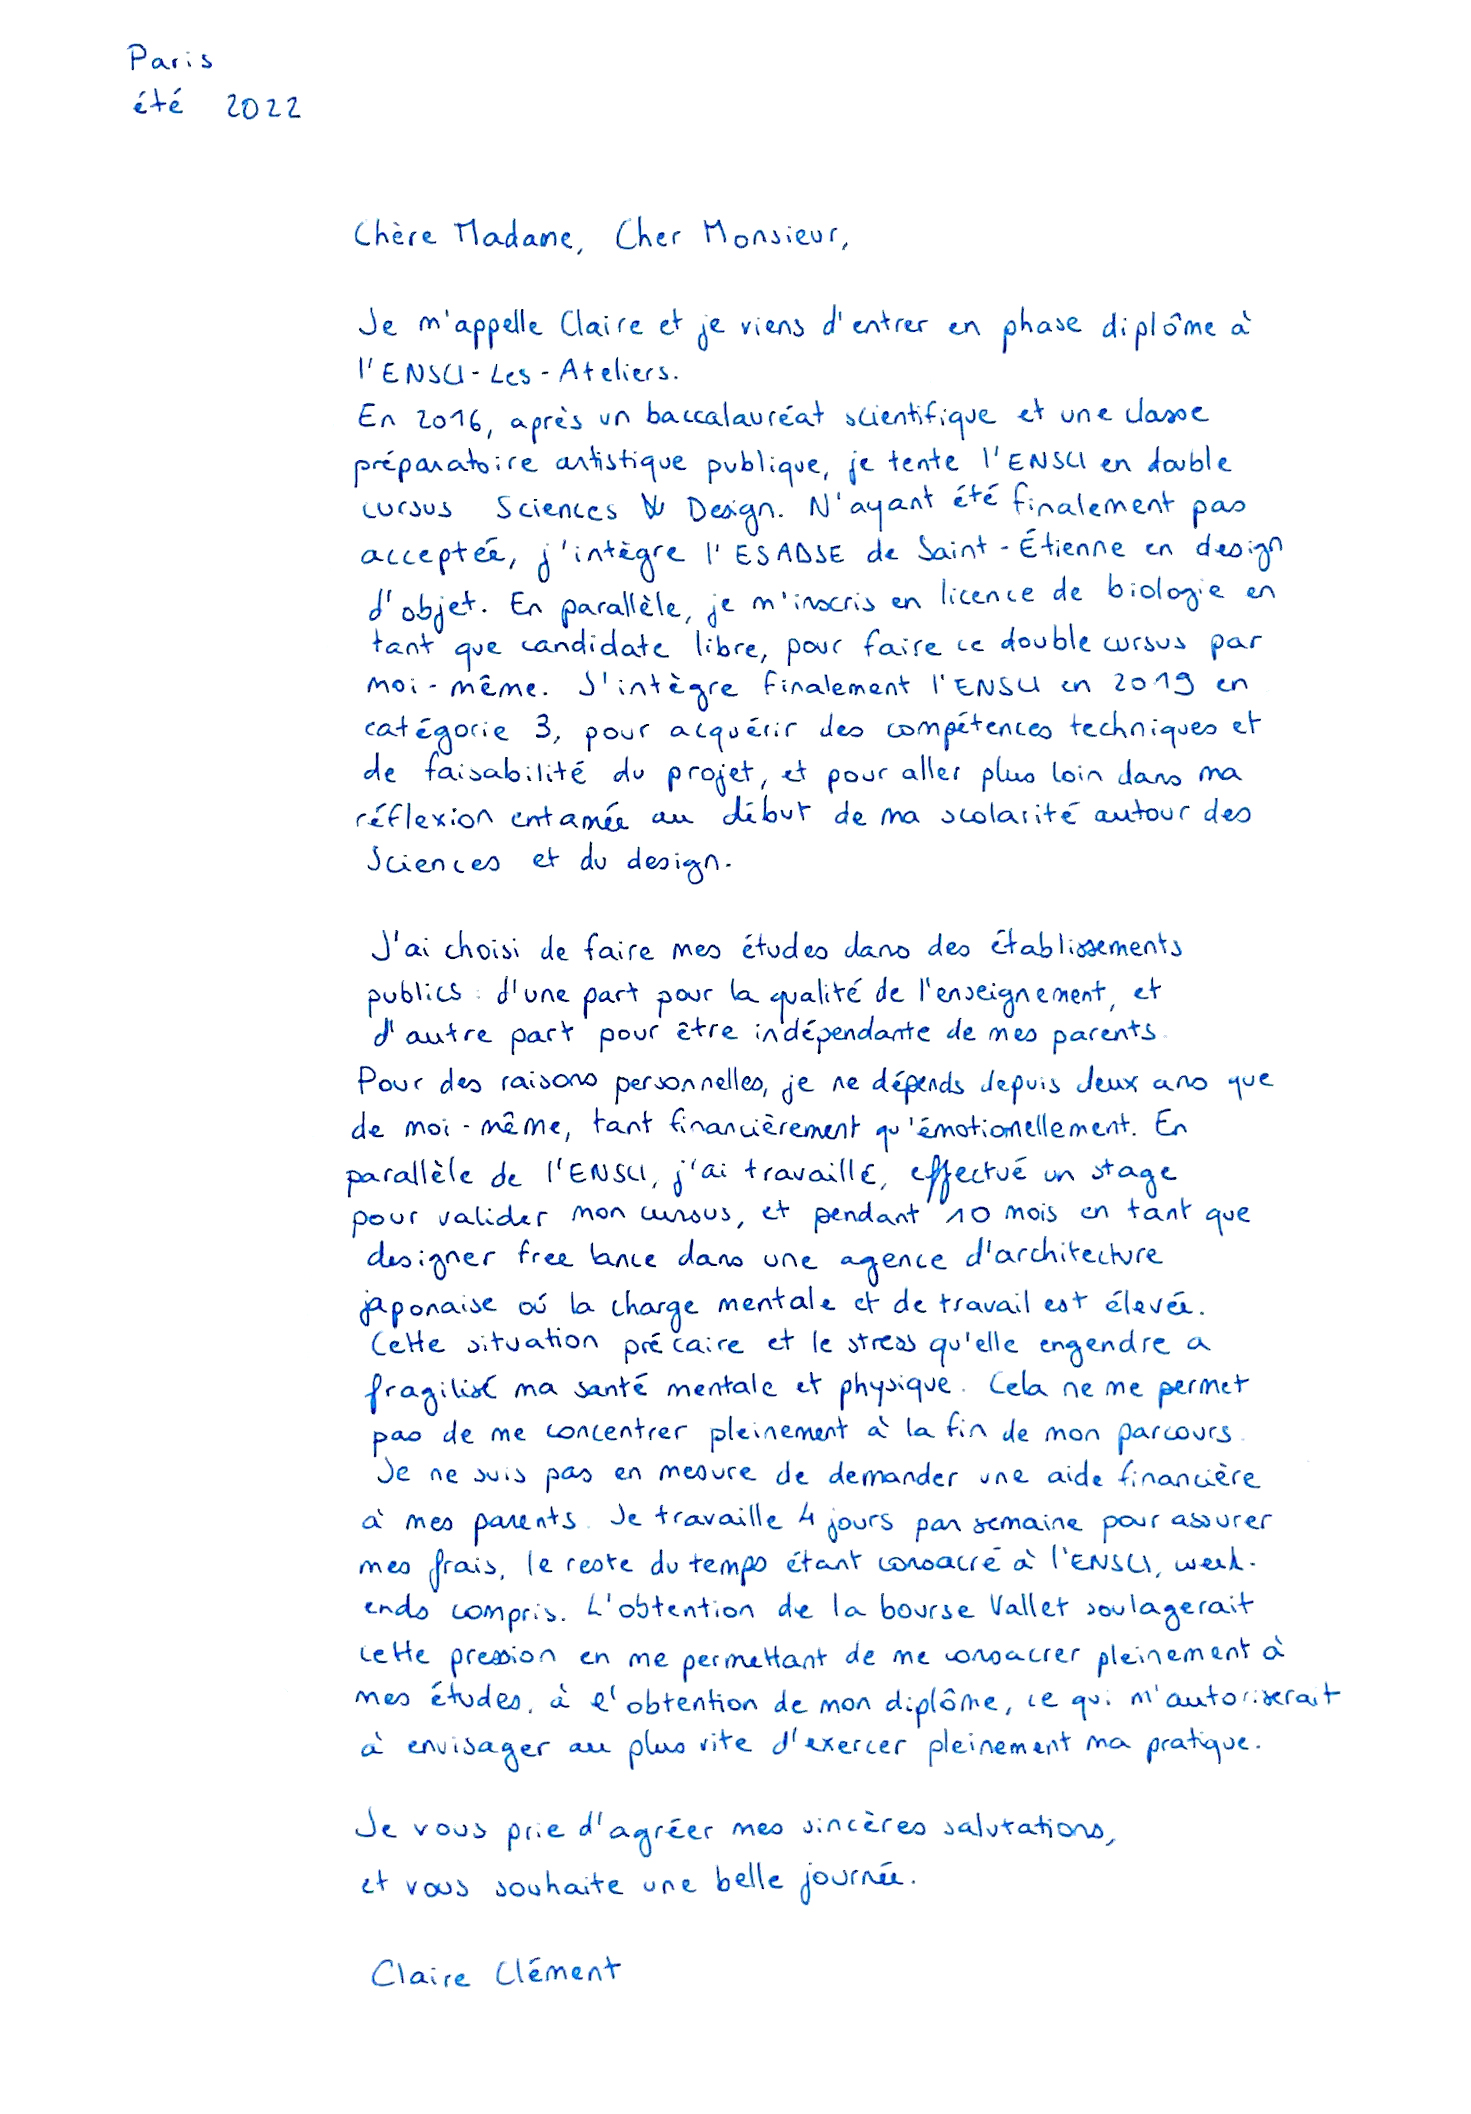 Paris
été 2022
Chère Madame, Cher Monsieur,
Je m'appelle Claire et je viens d'entrer en phase diplôme à
l'ENSCI-Les-Ateliers.
En 2016, après un baccalauréat scientifique et une classe
préparatoire artistique publique, je tente l'ENSCI en double
cursus Sciences & Design. N'ayant été finalement pas
acceptée, j'intègre l'ESADSE de Saint-Étienne en design
d'objet. En parallèle, je m'inscris en licence de biologie en
tant que candidate libre, pour faire ce double cursus par
moi-même. J'intègre finalement l'ENSCI en 2019 en
catégorie 3, pour acquérir des compétences techniques et
de faisabilité du projet, et pour aller plus loin dans ma
réflexion entamée au début de ma scolarité autour des
sciences et du design.
J'ai choisi de faire mes études dans des établissements
publics : d'une part pour la qualité de l'enseignement, et
d'autre part pour être indépendante de mes parents.
Pour des raisons personnelles, je ne dépends depuis deux ans que
de moi-même, tant financièrement qu'émotionellement. En
parallèle de l'ENSCI, j'ai travaillé, effectué un stage
pour valider mon cursus, et pendant 10 mois en tant que
designer free lance dans une agence d'architecture
japonaise où la charge mentale et de travail est élevée.
Cette situation précaire et le stress qu'elle engendre a
fragilisé ma santé mentale et physique. Cela ne me permet
pas de me concentrer pleinement à la fin de mon parcours.
Je ne suis pas en mesure de demander une aide financière
à mes parents. Je travaille 4 jours par semaine pour assurer
mes frais, le reste du temps étant consacré à l'ENSCI, week-
ends compris. L'obtention de la bourse Vallet soulagerait
cette pression en me permettant de me consacrer pleinement à
mes études, à l'obtention de mon diplôme, ce qui m'autoriserait
à envisager au plus vite d'exercer pleinement ma pratique.
Je vous prie d'agréer mes sincères salutations,
et vous souhaite une belle journée.
Claire Clément